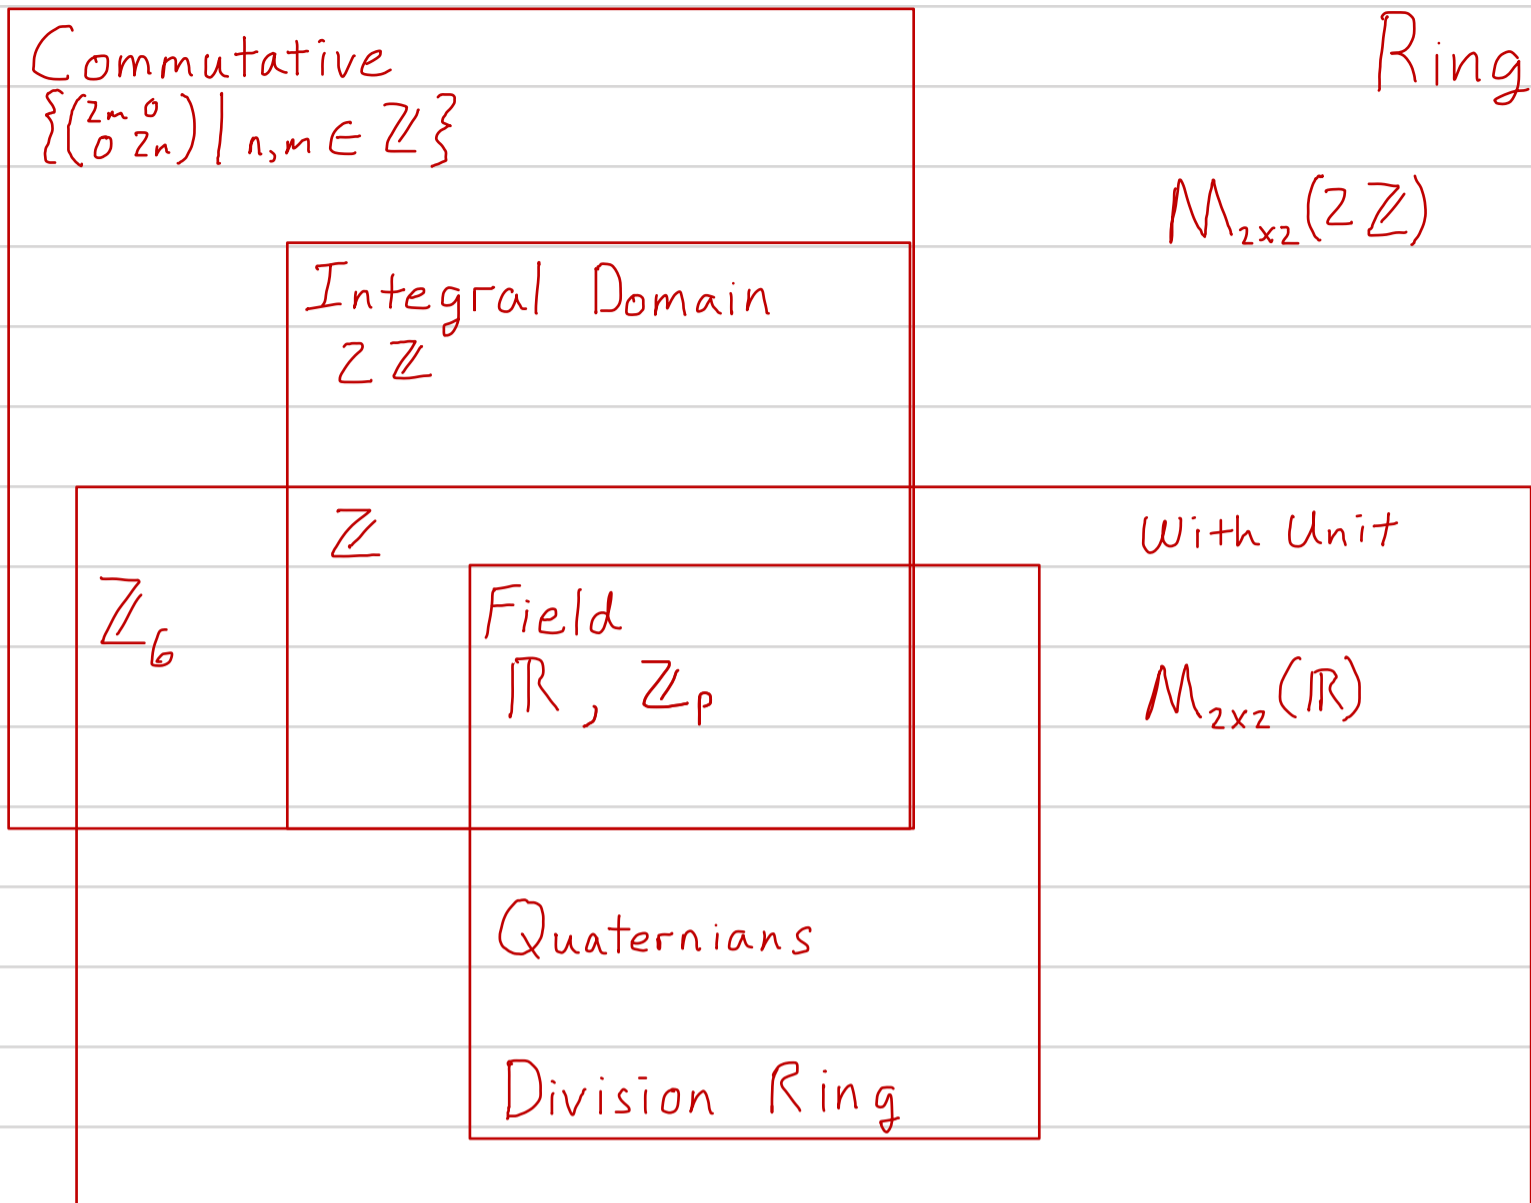 Commutative
{(2m 0
0 2n) | n,m ∈ ℤ}
Ring
M₂ₓ₂(2ℤ)
Integral Domain
2ℤ
ℤ
With Unit
ℤ₆
Field
ℝ, ℤₚ
M₂ₓ₂(ℝ)
Quaternians
Division Ring